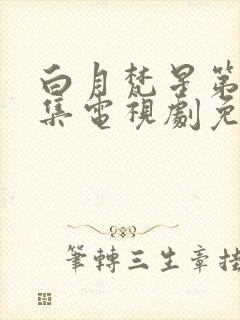 白月梵星第
集電視劇免
筆轉三生章挂